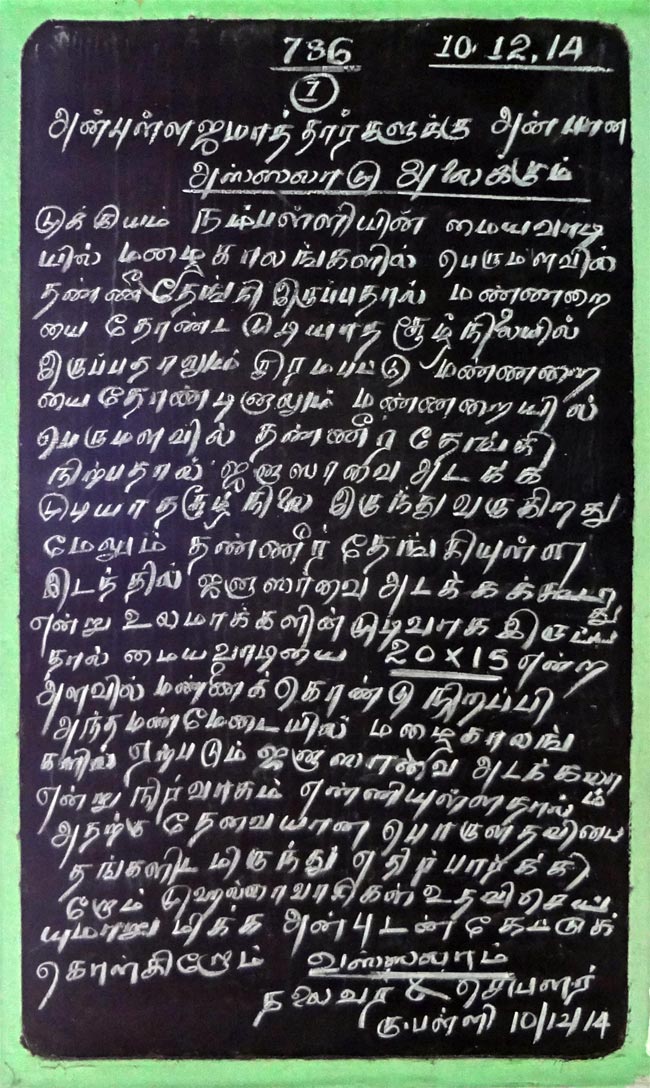 786 10.12.14
1
அன்புள்ள ஜமாத்தார்களுக்கு அன்பான
அஸ்ஸலாமு அலைக்கும்
முக்கியம் நம்பள்ளியின் மையவாடி
யில் மழைகாலங்களில் பெருமளவில்
தண்ணீர் தேங்கி இருப்பதால் மண்ணறை
யை தோண்ட முடியாத சூழ்நிலையில்
இருப்பதாலும் சிரமபட்டு மண்ணறை
யை தோண்டினாலும் மண்ணறையில்
பெருமளவில் தண்ணீர் தேங்கி
நிற்பதால் ஜனாஸாவை அடக்க
முடியாத சூழ்நிலை இருந்து வருகிறது
மேலும் தண்ணீர் தேங்கியுள்ள
இடத்தில் ஜனாஸாவை அடக்கக்கூடாது
என்று உலமாக்களின் முடிவாக இருப்ப
தால் மையவாடியை 20X15 என்ற
அளவில் மண்ணைக்கொண்டு நிறப்பி
அந்த மண்மேடையில் மழைகாலங்
களில் ஏற்படும் ஜனாஸாவை அடக்கலா
ம்
என்று நிர்வாகம் எண்ணியுள்ளதால்
அதற்கு தேவையான பொருளுதவியை
தங்களிடமிருந்து எதிர்பார்க்கி
றோம் முஹல்லாவாசிகள் உதவி செய்
யுமாறு மிக்க அன்புடன் கேட்டுக்
கொள்கிறோம் வஸ்ஸலாம்
தலைவர் & செயலர்
மு.பள்ளி 10/12/14